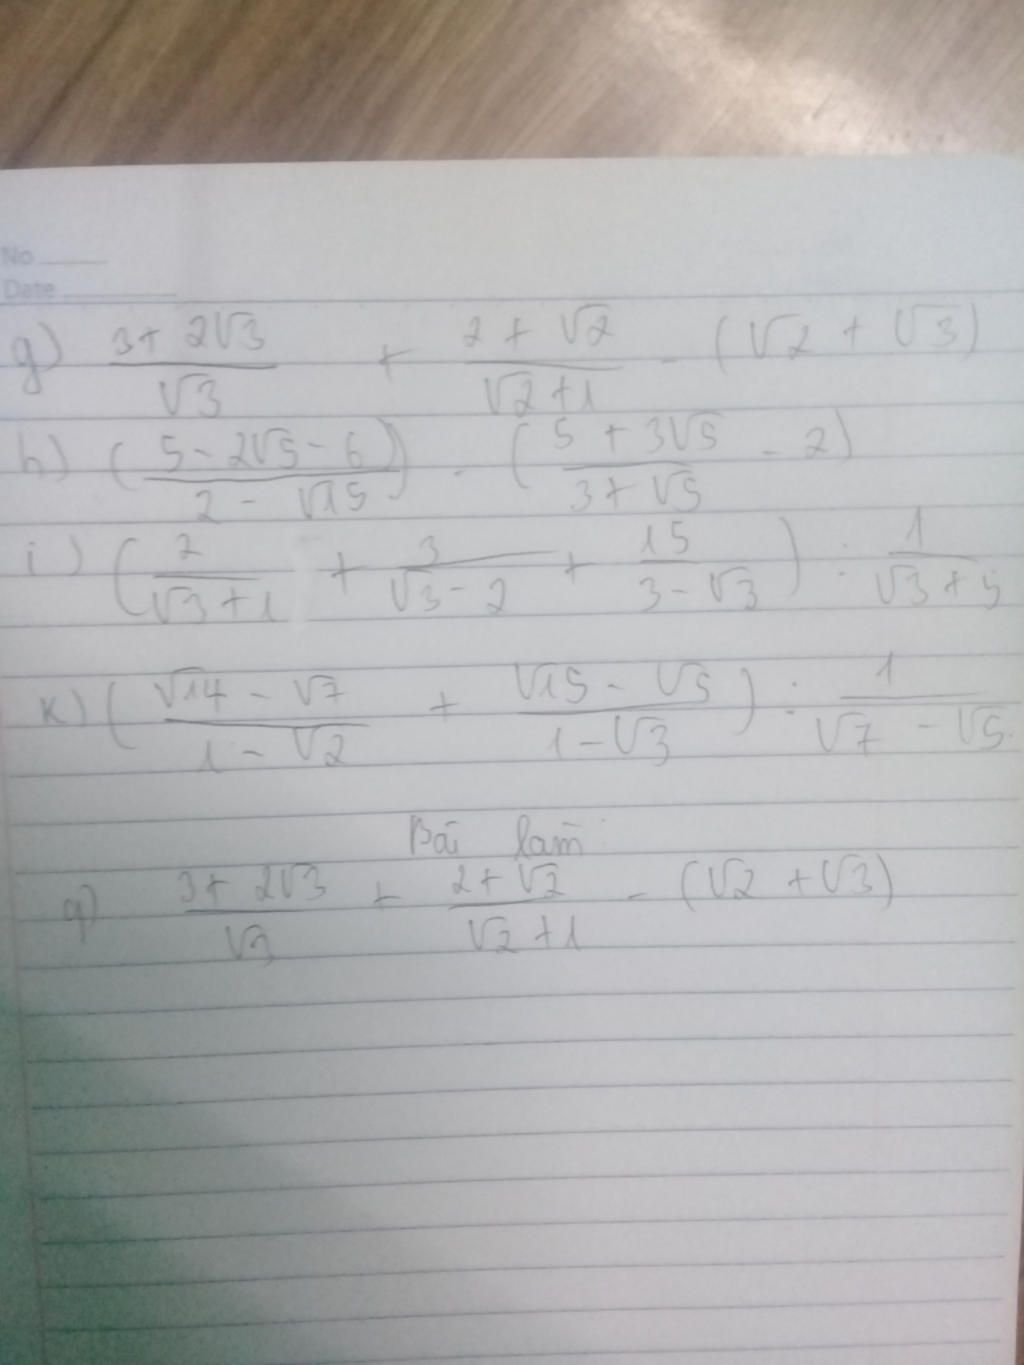 No
Date
g) (3 + 2√3)/√3 + (2 + √2)/(√2 + 1) - (√2 + √3)
h) ((5 - 2√5 - 6)/(2 - √15)) - ((5 + 3√5)/(3 + √5) - 2)
i) (2/(√3 + 1) + 3/(√3 - 2) + 15/(3 - √3)) : 1/(√3 + 5)
K) ((√14 - √7)/(1 - √2) + (√15 - √5)/(1 - √3)) : 1/(√7 - √5)
Bài làm
g) (3 + 2√3)/√3 + (2 + √2)/(√2 + 1) - (√2 + √3)